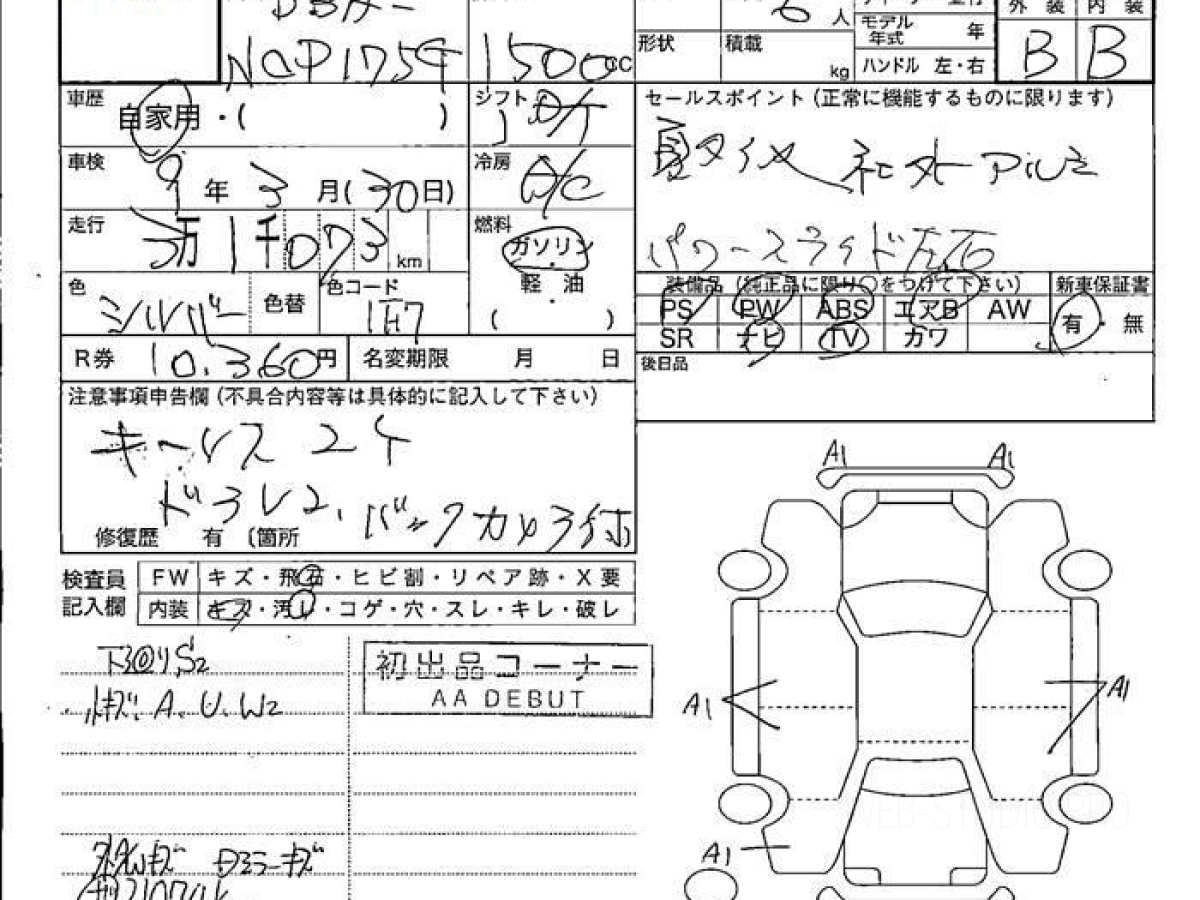 DBA-
6 人
外装 内装
NCP175G
1500 CC
形状
積載 kg
モデル年式 年
ハンドル 左・右
B B
車歴 自家用・( )
シフト
セールスポイント (正常に機能するものに限ります)
車検 9年3月(30日)
冷房 A/C
夏タイヤ 社外アルミ
走行 万1千073km
燃料 ガソリン・軽油・( )
パワースライドドア左右
色 シルバー
色替
色コード 1F7
装備品 (純正品に限り○をつけて下さい)
新車保証書 有・無
PS PW ABS エアB AW
SR ナビ TV カワ
R券 10,360円
名変期限 月 日
後日品
注意事項申告欄 (不具合内容等は具体的に記入して下さい)
キーレス2ケ
ドラレコ、バックカメラ付
修復歴 有 (箇所
A1 A1
検査員記入欄
FW キズ・飛石・ヒビ割・リペア跡・X要
内装 キズ・汚レ・コゲ・穴・スレ・キレ・破レ
S2
初出品コーナー
AA DEBUT
A、U、W2
A1 A1
A1
キズ ミラーキズ